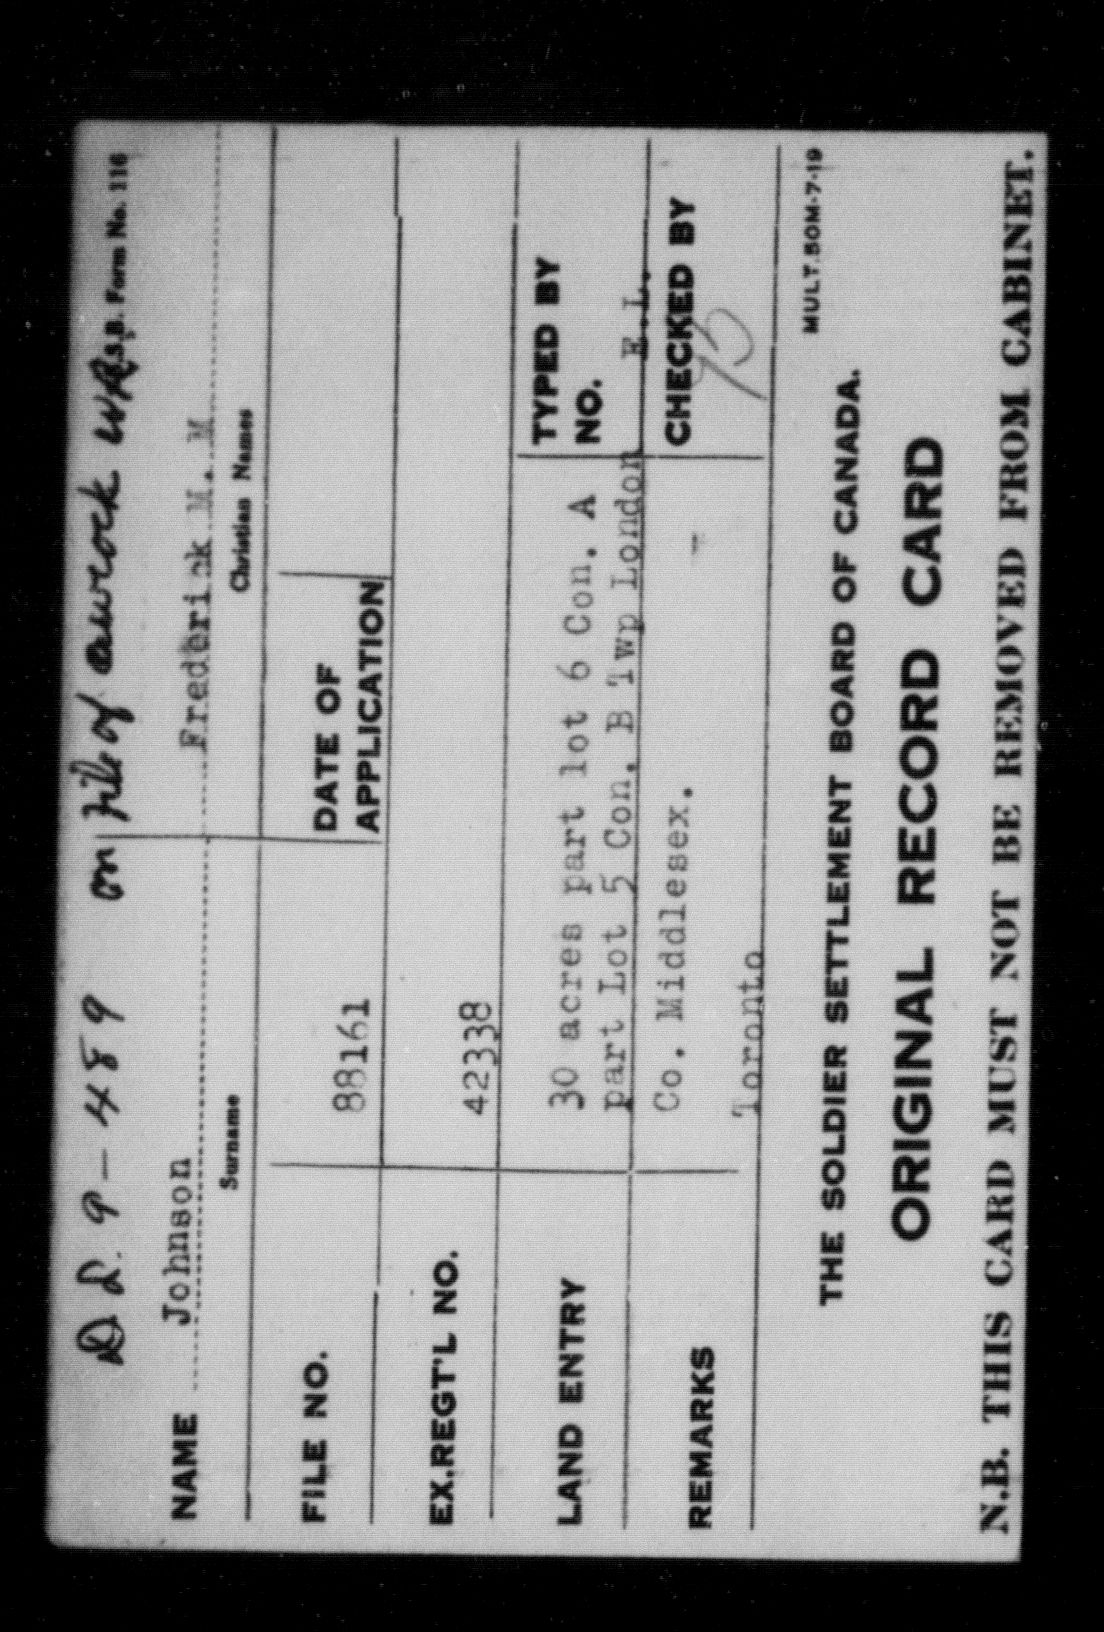 D.D. 9-489 on file of Awcock WR
S.B. Form No. 116
NAME Johnson Frederick M. M
Surname Christian Names
FILE NO. 88161 DATE OF APPLICATION
EX.REGT'L NO. 42338
LAND ENTRY 30 acres part lot 6 Con. A
part Lot 5 Con. B Twp London
Co. Middlesex.
TYPED BY
NO. E.L.
REMARKS Toronto
CHECKED BY
MULT.50M-7-19
THE SOLDIER SETTLEMENT BOARD OF CANADA.
ORIGINAL RECORD CARD
N.B. THIS CARD MUST NOT BE REMOVED FROM CABINET.